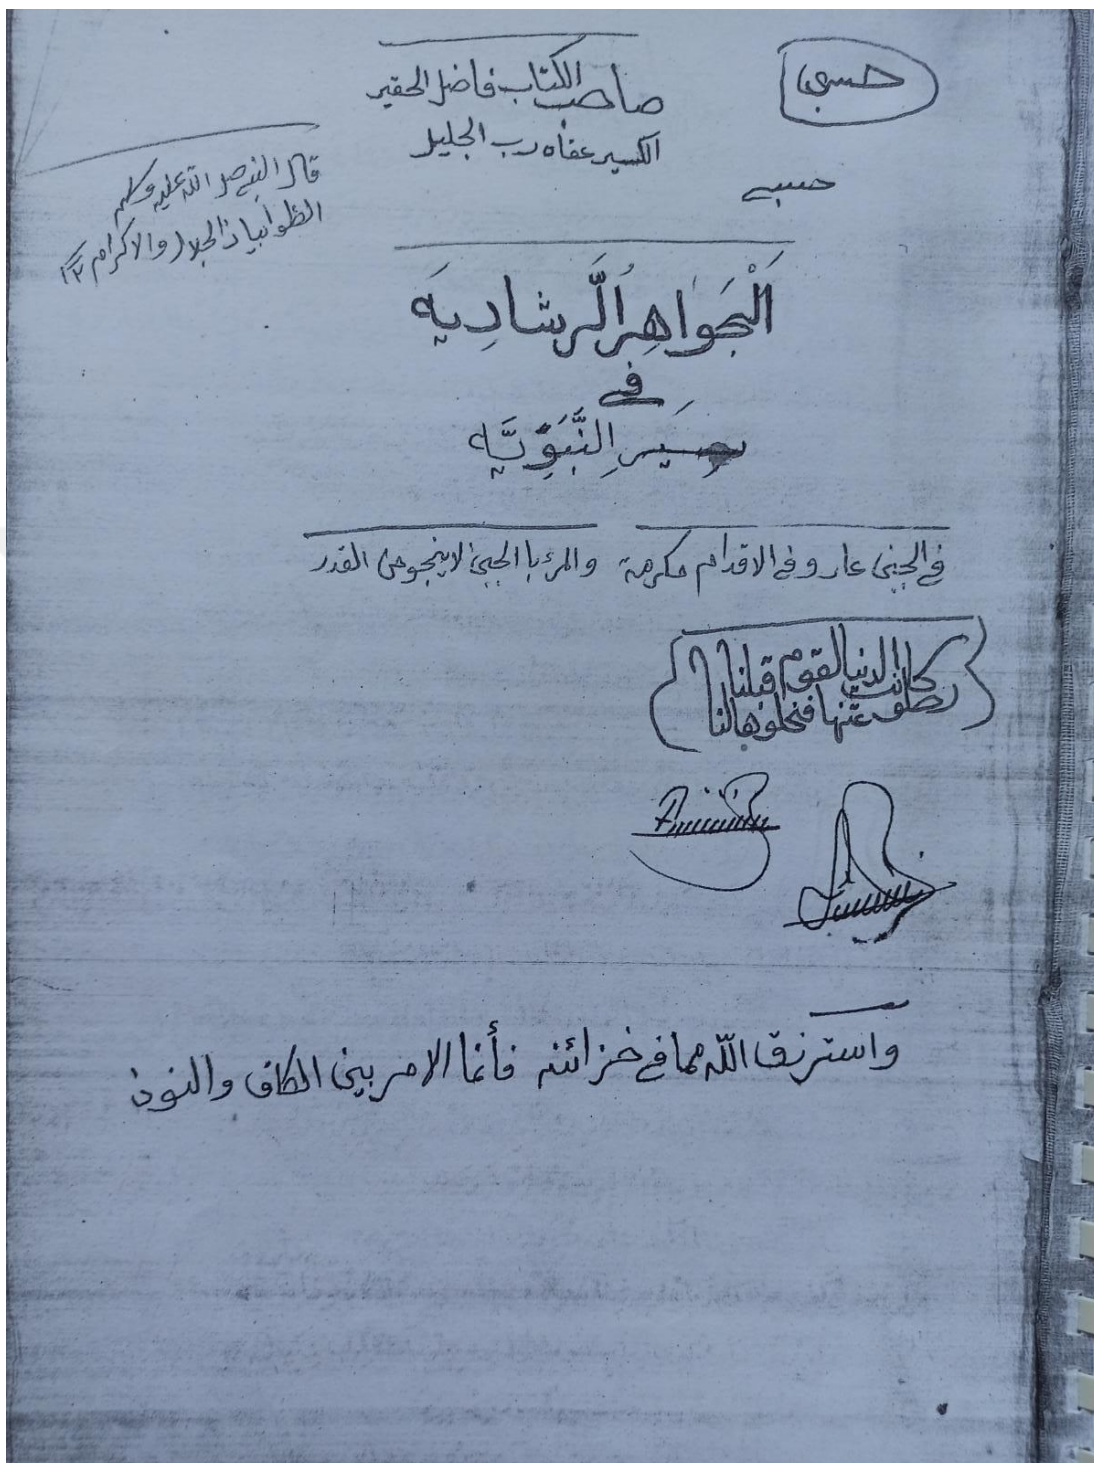 حسبي
صاحب الكتاب فاضل الحقير
الكسير عفاه رب الجليل
حسبي
قال النبي صل الله عليه وسلم
الظوابيا ذالجلال والاكرام ١٢
اَلْجَوَاهِرُ الَّرشادِيَه
في
سِيَرِ النَّبَوِيَّه
في الجبن عار وفي الاقدام مكرمة والمرء با الجبن لا ينجو من القدر
كانت الدنيا لقوم قبلنا
رحلو عنها فخلوها لنا
واسترزق الله مما في خزائنه فأنما الامر بين الكاف والنون